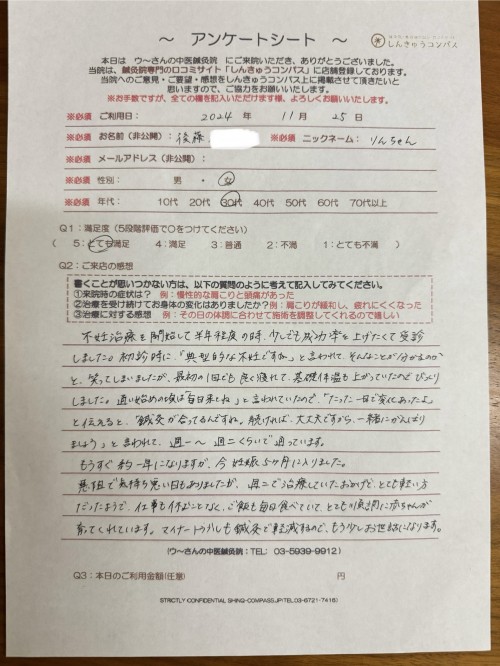 ～ アンケートシート ～
しんきゅうコンパス
本日は ウ～さんの中医鍼灸院 にご来院いただき、ありがとうございました。
当院は、鍼灸院専門の口コミサイト「しんきゅうコンパス」に店舗登録しております。
当院へのご意見・ご要望・感想をしんきゅうコンパス上に掲載させて頂きたいと
思いますので、ご協力をお願いいたします。
※お手数ですが、全ての欄を記入いただけます様、よろしくお願いいたします。
※必須 ご利用日： 2024 年 11 月 25 日
※必須 お名前（非公開）： 後藤 ※必須 ニックネーム： りんちゃん
※必須 メールアドレス（非公開）：
※必須 性別： 男 ・ 女
※必須 年代： 10代 20代 30代 40代 50代 60代 70代以上
Q1：満足度（5段階評価で〇をつけてください）
( 5：とても満足 4：満足 3：普通 2：不満 1：とても不満 )
Q2：ご来店の感想
書くことが思いつかない方は、以下の質問のように考えて記入してみてください。
①来院時の症状は？ 例：慢性的な肩こりと頭痛があった
②治療を受け続けてお身体の変化はありましたか？例：肩こりが緩和し、疲れにくくなった
③治療に対する感想 例：その日の体調に合わせて施術を調整してくれるので嬉しい
不妊治療を開始して半年程度の時、少しでも成功率を上げたくて受診
しました。初診時に、「典型的な不妊ですね」と言われて、そんなことが分かるのか
と、笑ってしまいましたが、最初の1回でも良く疲れて、基礎体温も上がっていたのでびっくり
しました。通い始めの頃は「毎日来てね」と言われていたので、「たった一日で変化あったよ」
と伝えると、「鍼灸が合ってるんですね。続ければ、大丈夫ですから、一緒にがんばり
ましょう」と言われて、週一～週二くらいで通っています。
もうすぐ約一年になりますが、今妊娠5ヶ月に入りました。
悪阻で気持ち悪い日もありましたが、週二で治療していたおかげで、とても軽い方
だったようで、仕事も休むことなく、ご飯も毎日食べていて、とても順調に赤ちゃんが
育ってくれています。マイナートラブルも鍼灸で軽減するので、もう少しお世話になります。
(ウ～さんの中医鍼灸院：TEL： 03-5939-9912)
Q3：本日のご利用金額(任意) 円
STRICTLY CONFIDENTIAL SHINQ-COMPASS.JP(TEL03-6721-7416)